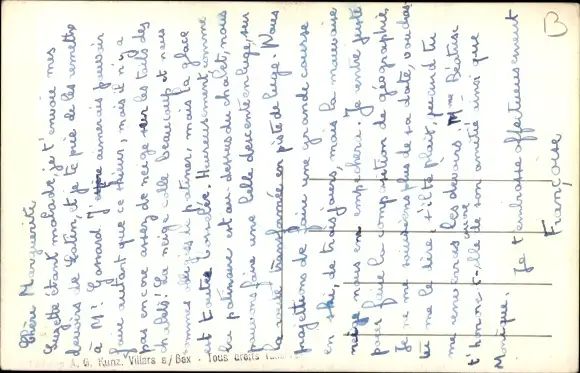 Chère Marguerite
Suzette étant malade, je t'envoie mes
devoirs de Latin, et je te prie de les remettre
à Mr. J' aimerais pouvoir
faire autant que ce skieur, mais il n'y a
pas encore assez de neige sur les toits des
chalets! La neige elle beaucoup et nous
sommes obligés de patiner, mais la glace
est très bosselée. Heureusement comme
la patinoire est au-dessus du chalet, nous
pouvons faire une belle descente en luge, sur
la route transformée en piste de luge. Nous
projettions de faire une grande course
en ski, de trois jours, mais la mauvaise
neige nous en empêchera. Je rentre juste
pour faire la composition de géographie.
Je ne me souviens plus de sa date, voudras
tu me le dire s'il te plaît, quand tu
me renverras les devoirs. Mme Béatrise
t'honore-t-elle de son amitié ainsi que
Monique.
Je t'embrasse affectueusement
Françoise
B
A. G. Kunz, Villars s/Bex - Tous droits